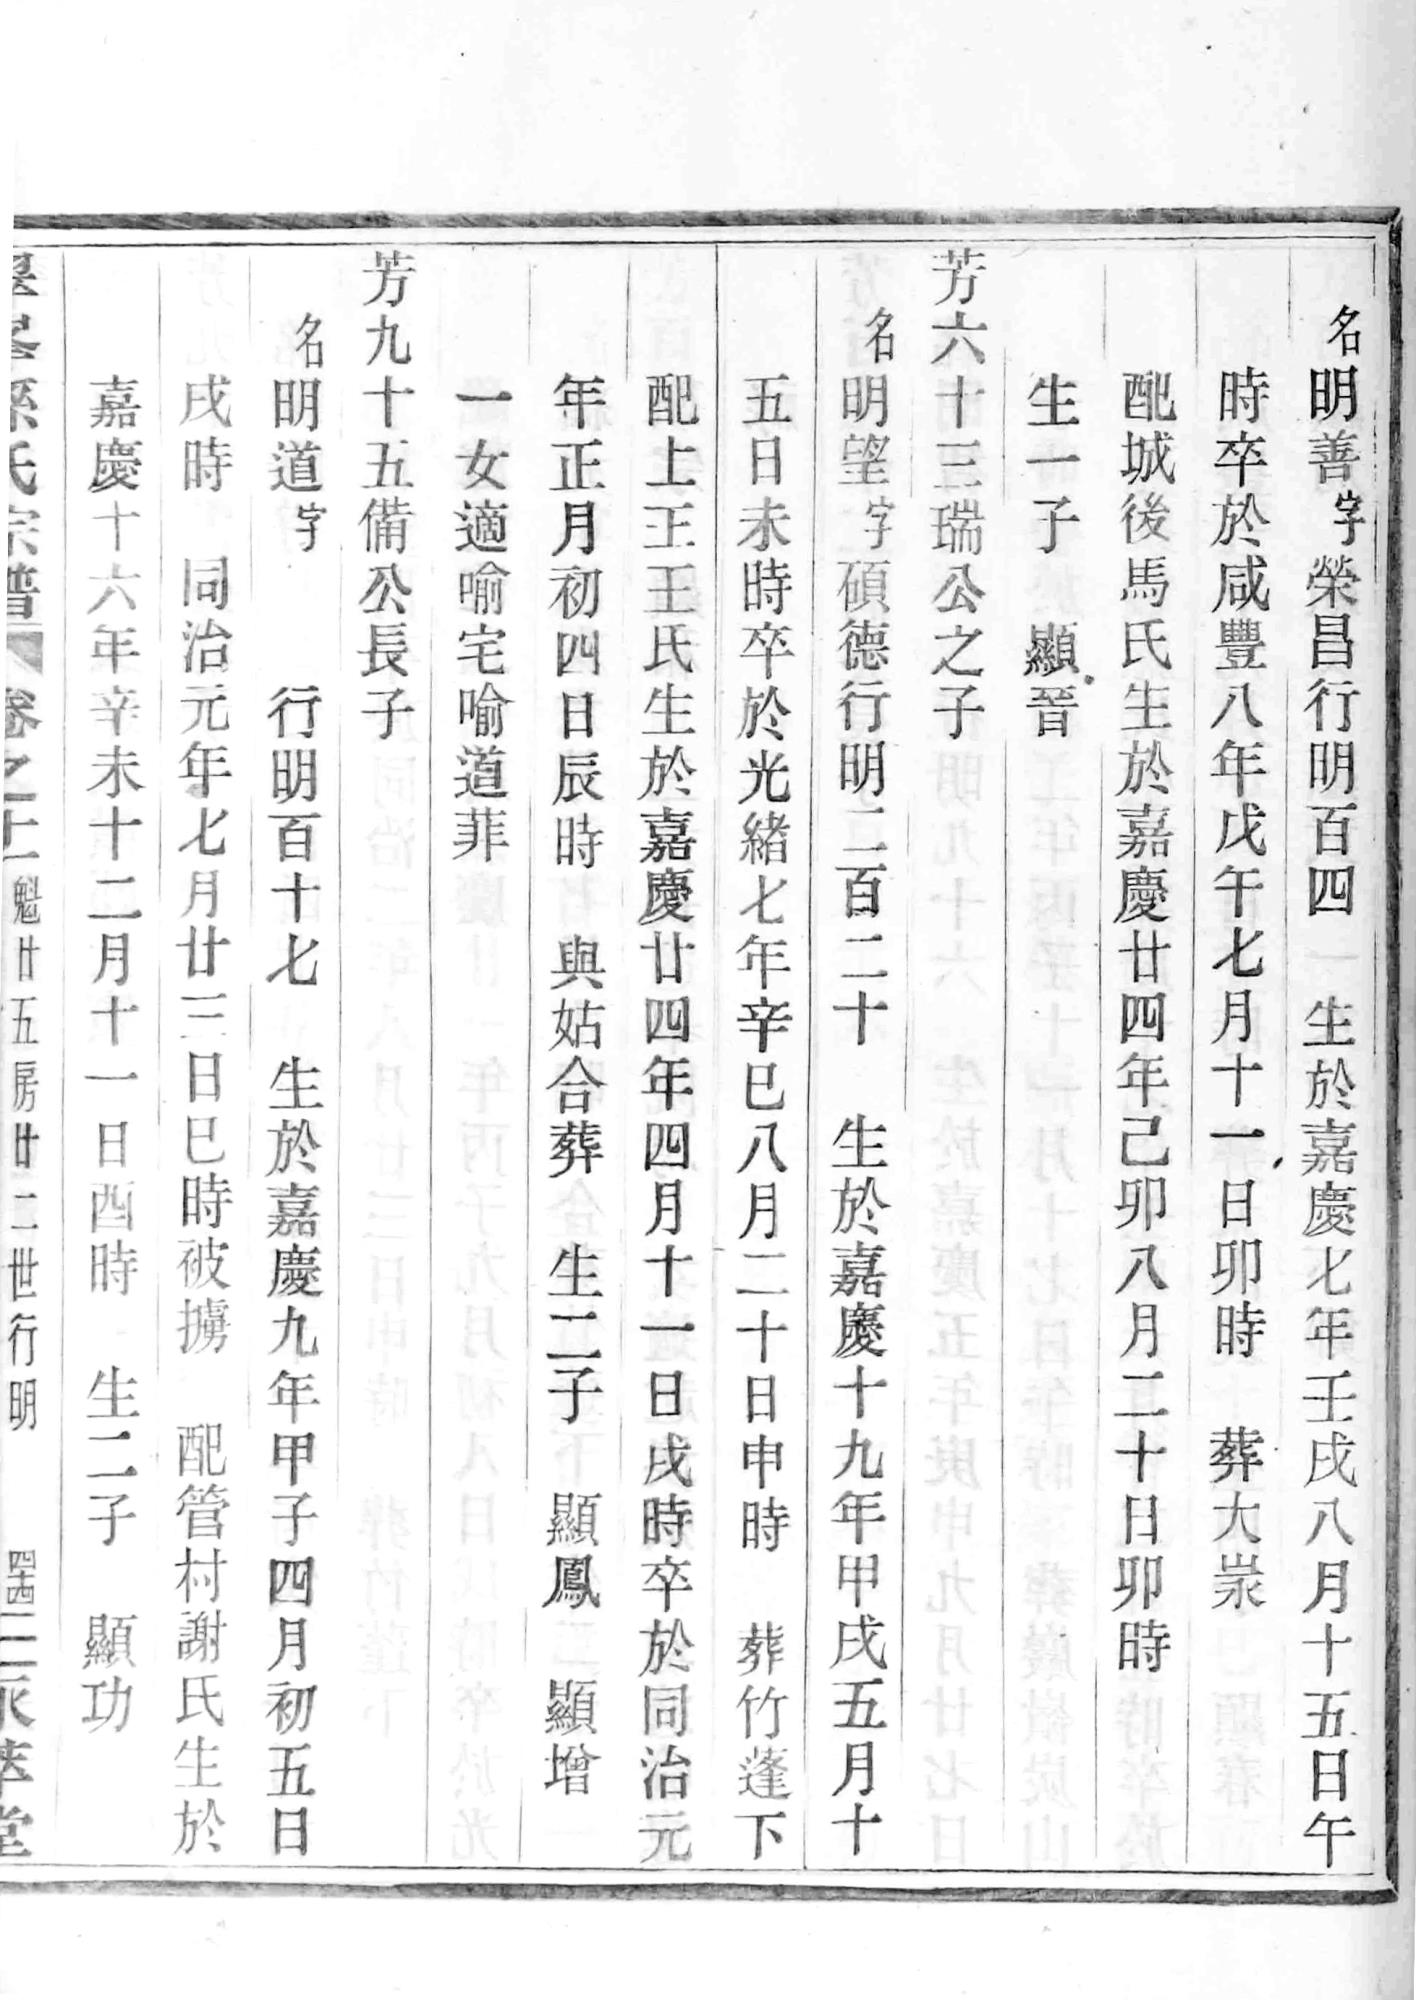 名明善字榮昌行明百四一 生於嘉慶七年壬戌八月十五日午
時卒於咸豐八年戊午七月十一日卯時 葬大泉
配城後馬氏生於嘉慶廿四年己卯八月二十日卯時
生一子 顯晉
芳六十三瑞公之子
名明望字碩德行明二百二十 生於嘉慶十九年甲戌五月十
五日未時卒於光緒七年辛巳八月二十日申時 葬竹蓬下
配上王王氏生於嘉慶廿四年四月十一日戌時卒於同治元
年正月初四日辰時 與姑合葬 生二子 顯鳳 顯增
一女適喻宅喻道菲
芳九十五備公長子
名明道字 行明百十七 生於嘉慶九年甲子四月初五日
戌時 同治元年七月廿三日巳時被擄 配管村謝氏生於
嘉慶十六年辛未十二月十一日酉時 生二子 顯功
孫氏宗譜 卷之十一 魁廿五房廿二世行明 萃堂